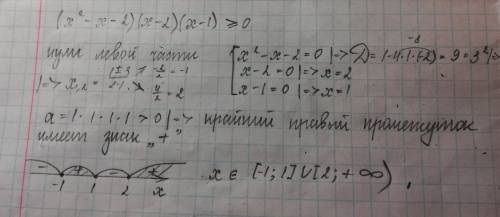 (x² - x - 2)(x - 2)(x - 1) ≥ 0
нули левой части
[x² - x - 2 = 0 |=> D = 1 - 4·1·(-2) = 9 = 3² |=>
-8
x - 2 = 0 |=> x = 2
x - 1 = 0 |=> x = 1
|=> x₁,₂ = (1 ± 3)/(2·1) -2/2 = -1
4/2 = 2
a = 1·1·1·1 > 0 |=> крайний правый промежуток
имеет знак „+“
- + - +
-1 1 2 x
x ∈ [-1; 1] ∪ [2; +∞)